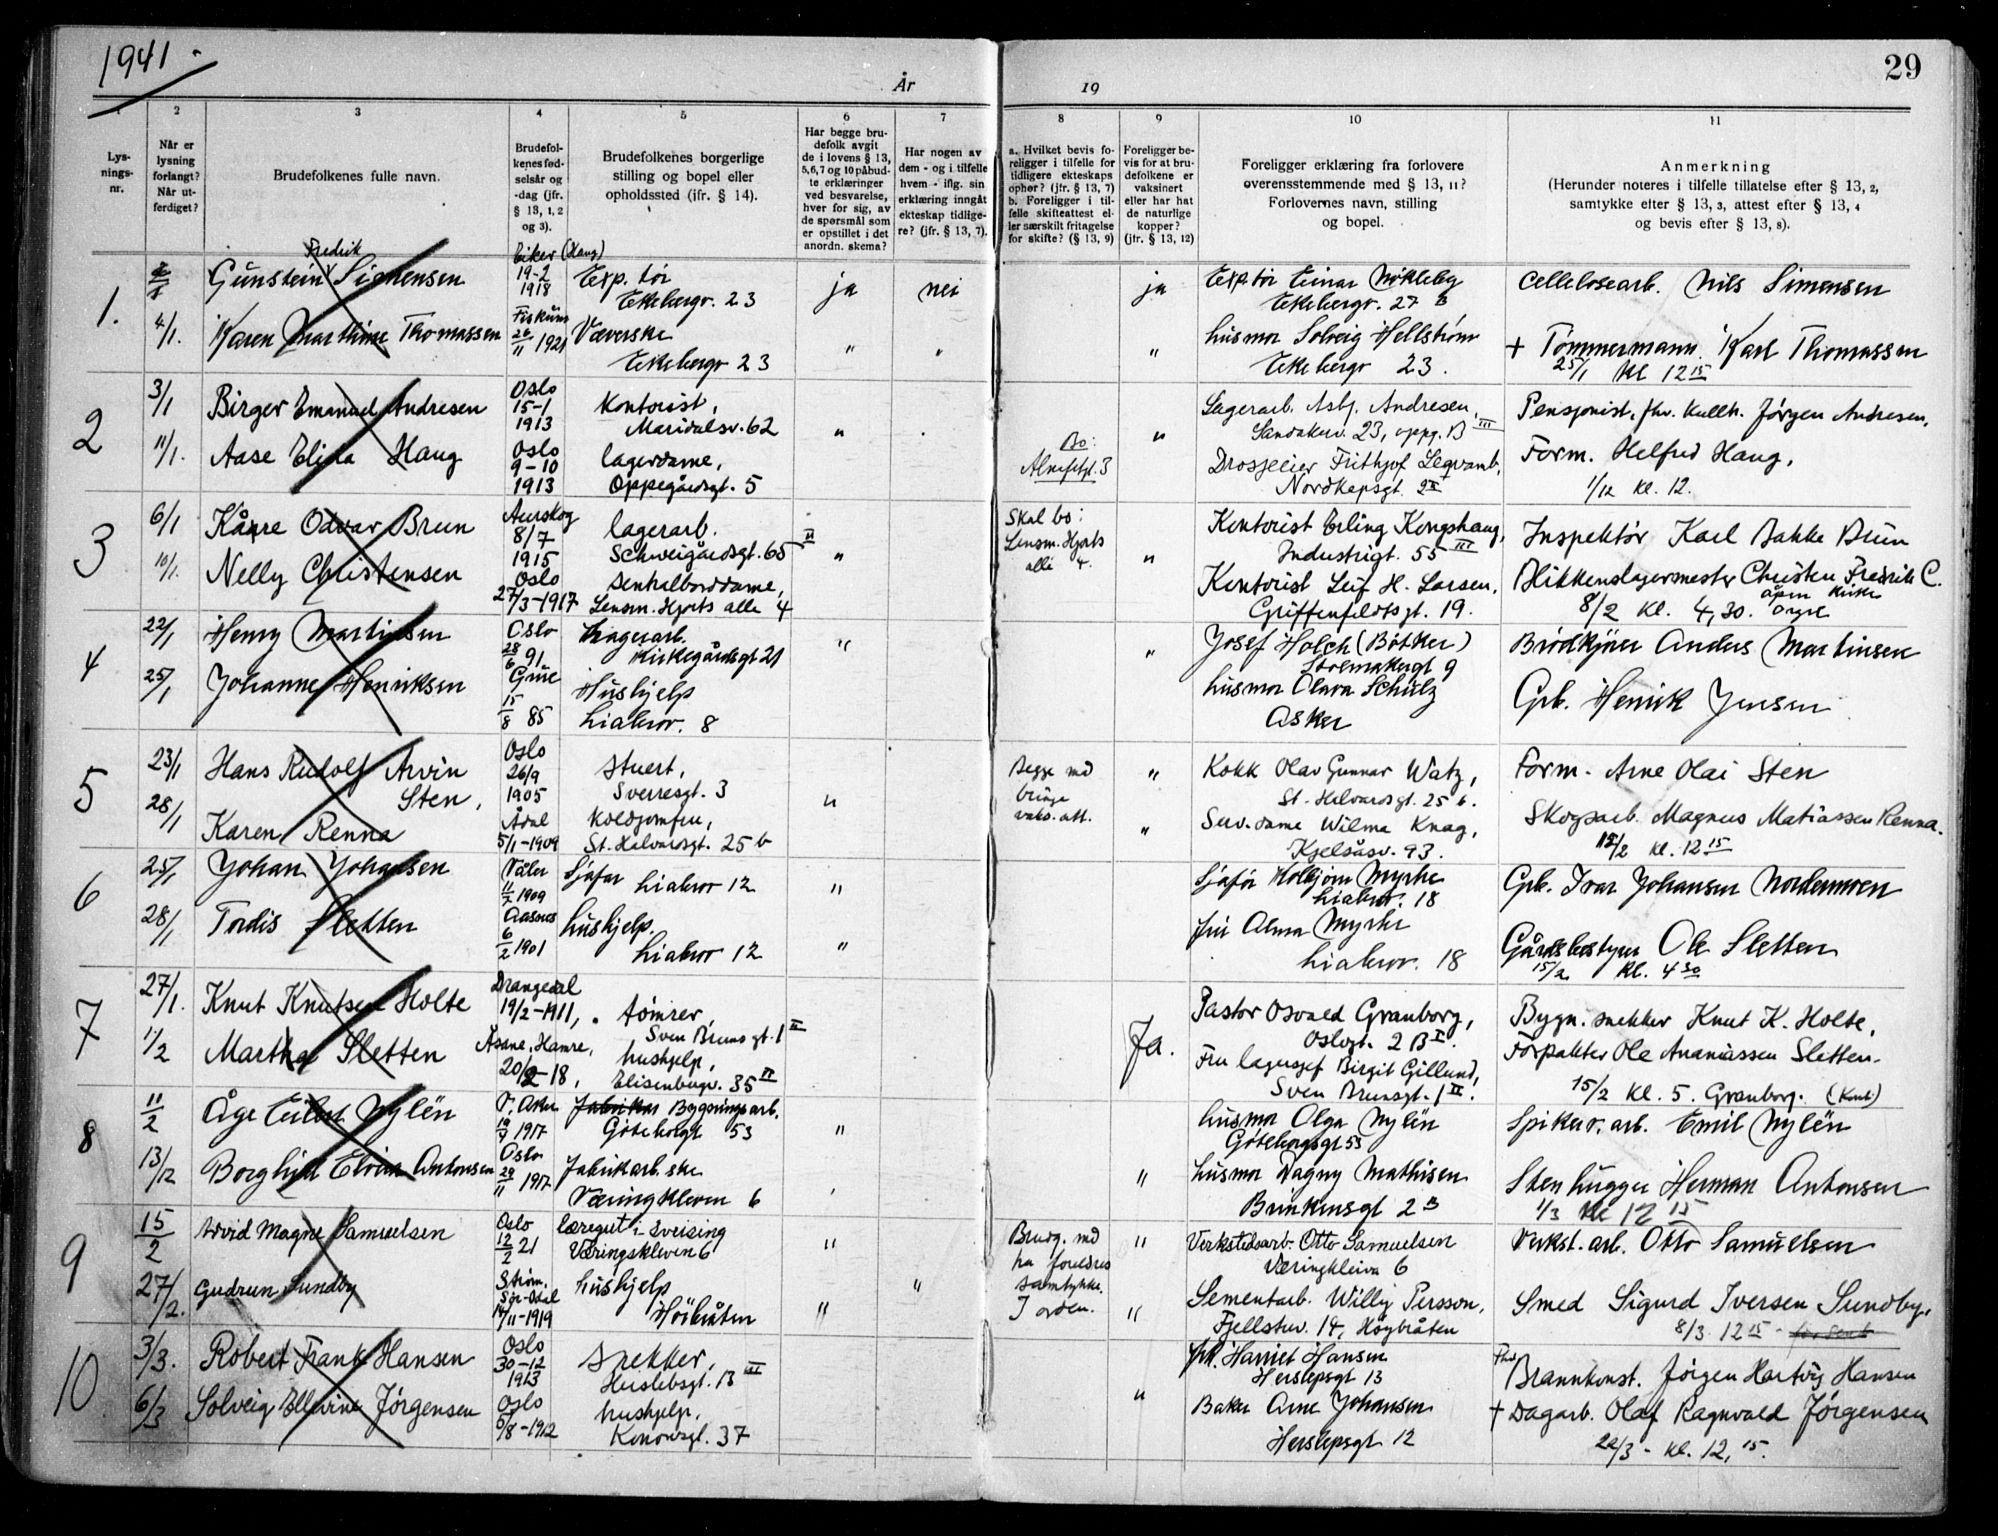 1941.
29
År
19
1
2
3
4
5
6
7
8
9
10
11
Lys-
nings-
nr.
Når er
lysning
forlangt?
Når ut-
ferdiget?
Brudefolkenes fulle navn.
Brudefol-
kenes fød-
selsår og
-dag (jfr.
§ 13, 1, 2
og 3).
Brudefolkenes borgerlige
stilling og bopel eller
opholdssted (jfr. § 14).
Har begge bru-
defolk avgit
de i lovens § 13,
5,6,7 og 10 påbud-
te erklæringer
ved besvarelse,
hver for sig, av
de spørsmål som
er opstillet i det
anordn. skema?
Har nogen av
dem - og i tilfelle
hvem - iflg. sin
erklæring inngåt
ekteskap tidlige-
re? (jfr. § 13, 7).
a. Hvilket bevis fo-
religger i tilfelle for
tidligere ekteskaps
ophør? (jfr. § 13, 7)
b. Foreligger i til-
felle skifteattest el-
ler særskilt fritagelse
for skifte? (§ 13, 9)
Foreligger be-
vis for at bru-
defolkene er
vaksinert
eller har hat
de naturlige
kopper?
(jfr. § 13, 12)
Foreligger erklæring fra forlovere
overensstemmende med § 13, 11?
Forlovernes navn, stilling
og bopel.
Anmerkning
(Herunder noteres i tilfelle tillatelse efter § 13, 2,
samtykke efter § 13, 3, attest efter § 13, 4
og bevis efter § 13, 8).
1.
4/1.
Fredrik
Gunstein Simensen
Karen Marthine Thomassen
Eiker (Haug)
19-2
1918
Fiskum
26/11 1921
Exp. tør
Ekebergv. 23
Væverske
Ekebergv 23
ja
nei
"
"
ja
"
Exp. tør Einar Nökleby
Ekebergv. 27 B
husmor Solveig Hellstrøm
Ekebergv 23.
Cellulosearb. Nils Simensen
+ Tømmermann Karl Thomassen
25/1 kl 12 15
2
3/1
11/1.
Birger Emanuel Andresen
Aase Elida Haug
Oslo
15-1
1913
Oslo
9-10
1913
Kontorist,
Maridalsv. 62
lagerdame,
Oppegårdsgt. 5
"
Bo:
3
"
Lagerarb. Asbj. Andresen,
Sandakerv. 23, oppg. B III
Drosjeeier Frithjof
2 II
Pensjonist, fhv. Jørgen Andresen.
Form. Helfred Haug,
1/12 kl. 12.
3
6/1
10/1.
Kåre Odvar Brun
Nelly Christensen
Aurskog
8/7
1915
Oslo
27/3-1917
lagerarb.
Schweigårdsgt. 65 II
Sentralborddame,
Lensm. Hjorts alle 4
"
Skal bo:
Lensm. Hjorts
alli 4.
"
Kontorist Erling Kongshaug,
Industrigt. 55 III
Kontorist Leif H. Larsen,
Griffenfeldtsgt. 19.
Inspektør Karl Bakke Brun
Blikkenslagermester Christen Fredrik C.
8/2 kl. 4,30.
4
22/1
25/1
Henry Martinsen
Johanne Henriksen
Oslo
28/6 91
Grue
15/8 85
Lagerarb.
Kirkegårdsgt 21
Hushjelp
Liabrov. 8
"
"
Josef Holch (Bøtker)
husmor Olava Schulz
Asker
Brødkjører Anders Martinsen
Grb. Henrik Jensen
5
23/1
28/1
Hans Rudolf Arvin
Sten,
Karen Renna
Oslo
26/9
1905
Ådal
5/1-1909
Stuert,
Sverresgt. 3
Koldjomfru,
St. Halvardsgt. 25 b
"
Begge må
bringe
vaks. att.
"
"
Kokk Olav Gunnar Watz,
St. Halvardsgt. 25 b.
Serv. dame Wilma Knag,
Kjelsåsv. 93.
Form. Arne Olai Sten
Skogsarb. Magnus Matiassen Renna.
15/2 kl. 12 15
6
25/1
28/1
Johan Johansen
Tordis Sletten
Våler
11/7 1909
Aasnes
6/2 1901
Sjåfør
Liabrov 12
hushjelp.
Liabrov 12
"
"
Sjåfør Myrhe
Liabrov. 18
fru Alma Myrhe
Liabrov. 18
Grb. Ivar Johansen Nordermoen
Gårdsbestyrer Ole Sletten
15/2 kl. 4 30
7
27/1.
11/2
Knut Knutsen Holte
Martha Sletten
Drangedal
19/2-1911,
Åsane, Hamre,
20/2-18,
tømrer,
Sven Bruns gt. 1 II
hushjelp,
Elisenbergv. 35 II
Ja.
Pastor Osvald Granborg,
Oslogt. 2 B I.
Fru lagersjef Birgit Gillund,
Sven Brunsgt. 1 II.
Bygn. snekker Knut K. Holte,
Forpakter Ole Ananiassen Sletten.
15/2 kl. 5. Granborg.
8
11/2
13/12
Åge Nylén
Borghild Antonsen
V. Aker
1917
Oslo
29/11 1917
Bygningsarb.
Göteborggt 53
Fabrikarb. ske
Væringkleven 6
"
"
husmor Olga Nylén
Göteborgsgt 53
husmor Dagny Mathisen
Brinkensgt 2 B
Spikerv. arb. Emil Nylén
Stenhugger Herman Antonsen
1/3 kl 12 15
9
15/2
27/2.
Arvid Magne Samuelsen
Gudrun Sundby
Oslo
12/2 21
Strøm,
Sør-Odal
14/11-1919
læregutt i sveising
Væringskleven 6
hushjelp
Høibråten
"
"
"
Brudg. må
ha foreldres
samtykke.
I orden.
"
"
Verkstedsarb. Otto Samuelsen
Væringkleiva 6
Sementarb. Willy Persson,
Fjellstuv. 14, Høybråten
Verkst. arb. Otto Samuelsen
Smed Sigurd Iversen Sundby.
8/3 12 15
10
3/3.
6/3
Robert Frank Hansen
Solveig Ellevine Jørgensen
Oslo
30-12
1913
Oslo
5/8-1912
Snekker,
Herslebsgt. 13 III
hushjelp,
Konowsgt. 37
"
frk. Harriet Hansen
Herslepsgt 13
Baker Arne Johansen
Herslepsgt 12
Fhv.
Brannkonst. Jørgen Hartvig Hansen
+ Dagarb. Olaf Ragnvald Jørgensen
22/3 - kl. 12,15.